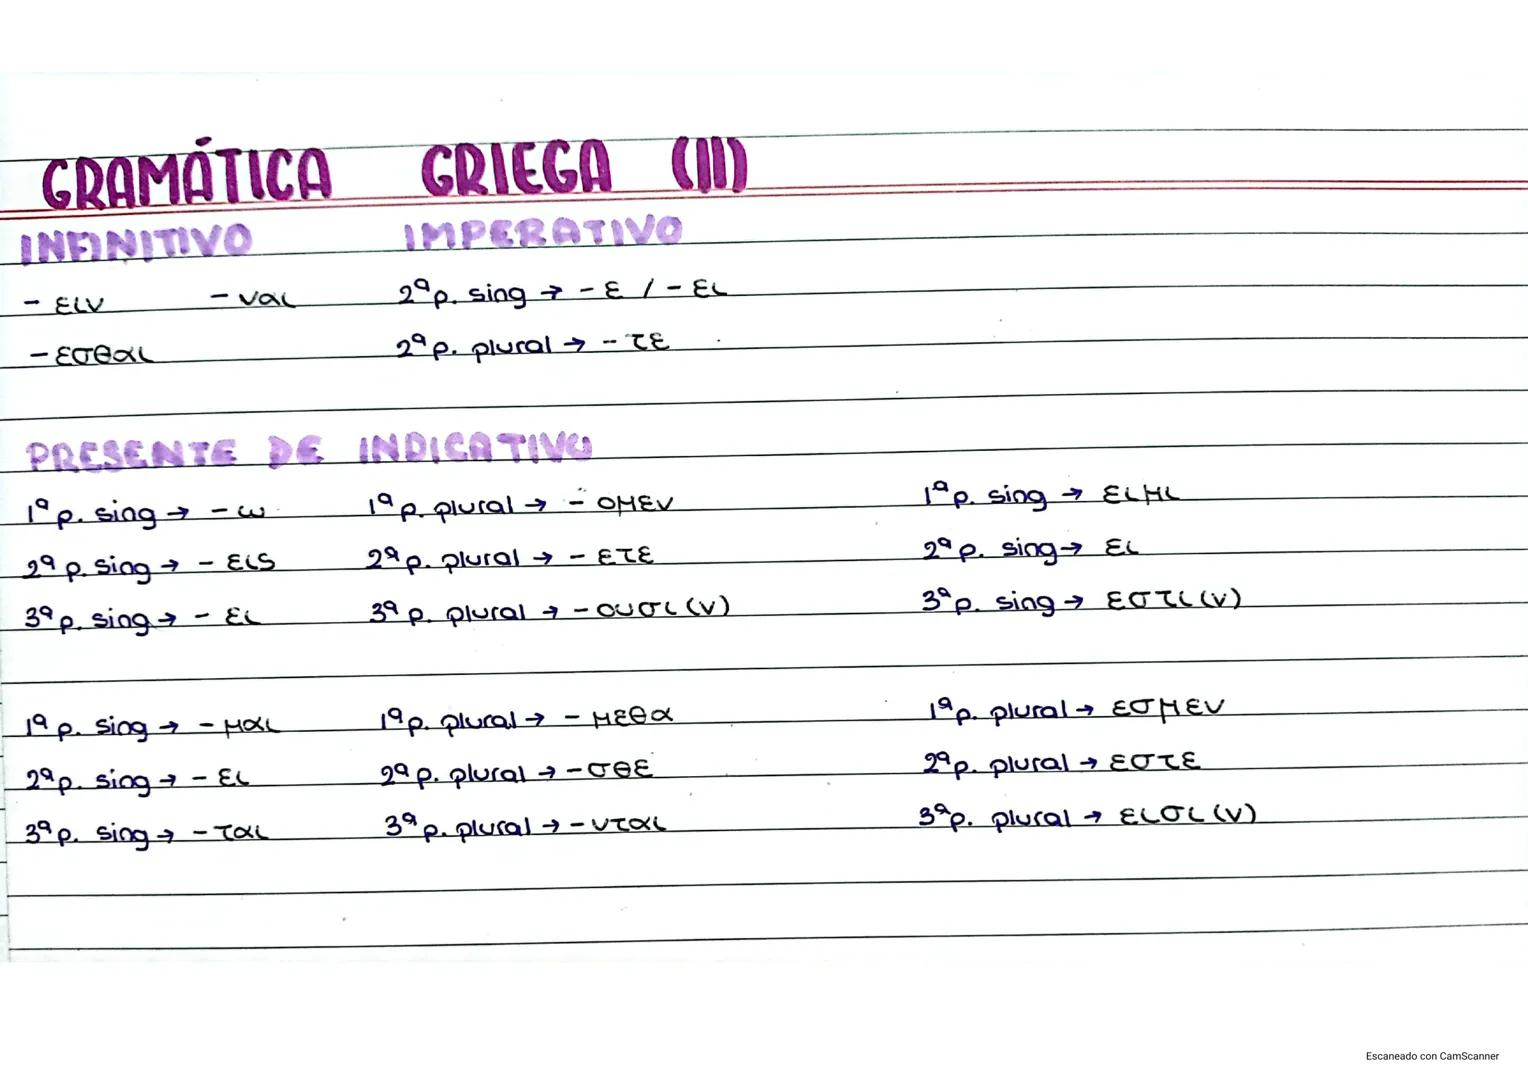 GRAMÁTICA GRIEGA (II)
INFINITIVO IMPERATIVO
- ειν - ναι 2ª p. sing → - ε / - ει
- εσθαι 2ª p. plural → - τε
PRESENTE DE INDICATIVO
1ª p. sing → - ω 1ª p. plural → - ομεν 1ª p. sing → ειμι
2ª p. sing → - εις 2ª p. plural → - ετε 2ª p. sing → ει
3ª p. sing → - ει 3ª p. plural → - ουσι (ν) 3ª p. sing → εστι (ν)
1ª p. sing → - μαι 1ª p. plural → - μεθα 1ª p. plural → εσμεν
2ª p. sing → - ει 2ª p. plural → - σθε 2ª p. plural → εστε
3ª p. sing → - ται 3ª p. plural → - νται 3ª p. plural → εισι (ν)
Escaneado con CamScanner